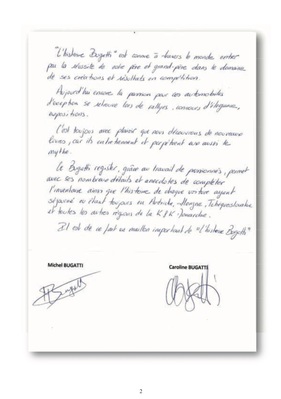 "L'histoire Bugatti" est connue à travers le monde entier
par la réussite de notre père et grand-père dans le domaine
de ses créations et résultats en compétition.
Aujourd'hui encore la passion pour ces automobiles
d'exception se retrouve lors de rallyes, concours d'élégance,
expositions.
C'est toujours avec plaisir que nous découvrons de nouveaux
livres, car ils entretiennent et perpétuent aussi le
mythe.
Le Bugatti register, grâce au travail de passionnés, permet
avec ses nombreux détails et anecdotes de compléter
l'inventaire ainsi que l'histoire de chaque voiture ayant
séjourné ou étant toujours en Autriche, Hongrie, Tchécoslovaquie
et toutes les autres régions de la K & K Monarchie.
Il est de ce fait un maillon important de "L'histoire Bugatti"
Michel BUGATTI Caroline BUGATTI
2